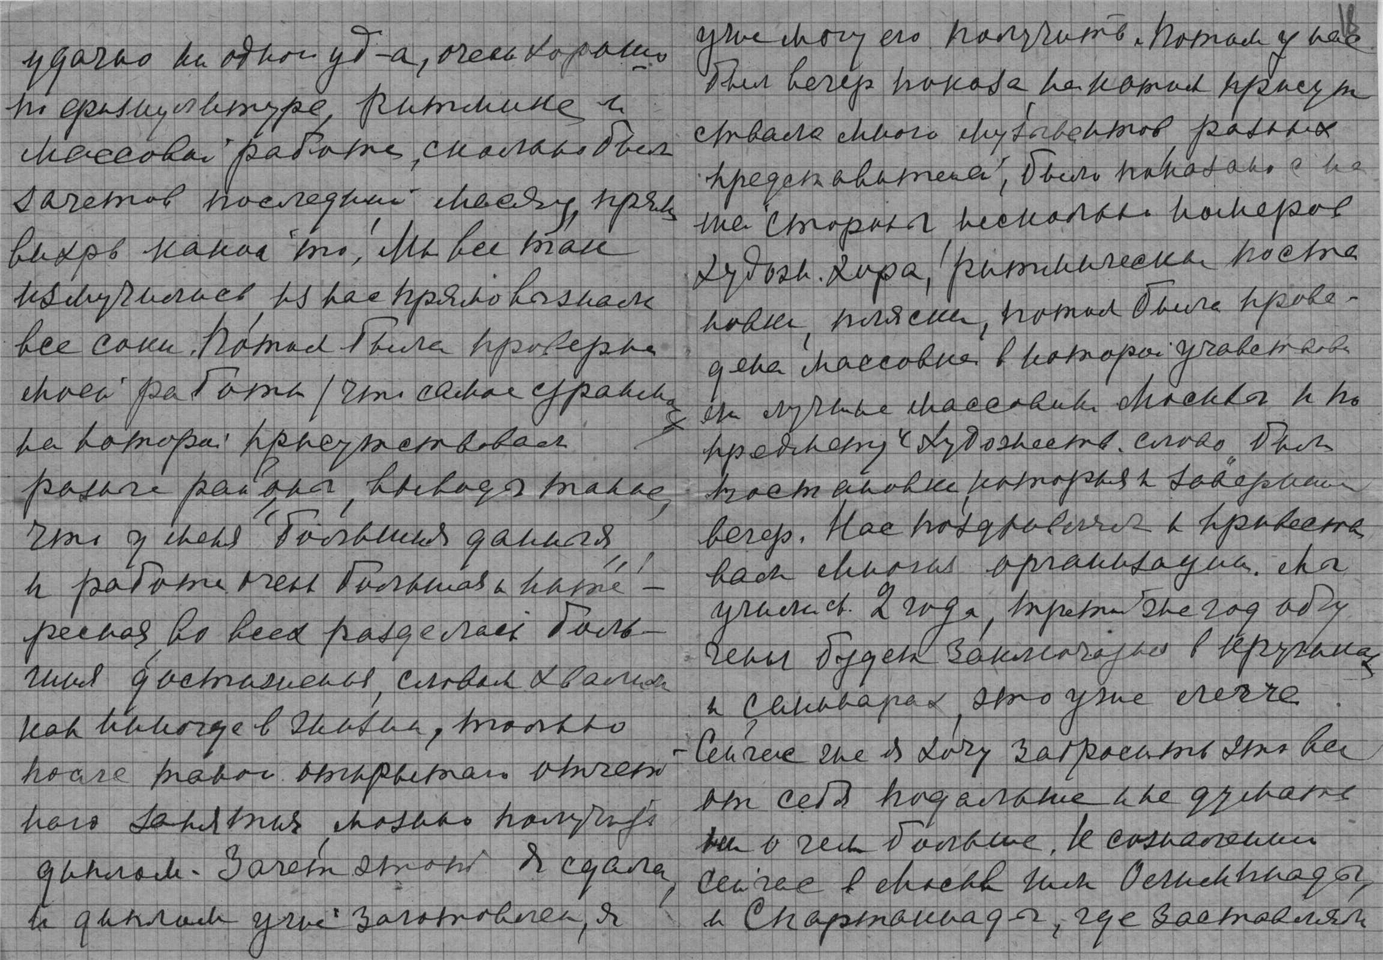 удачно ни одного уд-а, очень хорошо
по физкультуре, ритмике и
массовой работе, сколько было
зачетов последний месяц, прямо
вихрь какой то, Мы все так
измучились, из нас прямо выжали
все соки. Потом была проверка
моей работы / что самое страшное
на которой присутствовали
разные районы, выводы такие,
что у меня "большия данныя"
и работа очень большая и инте-
ресная, во всех разделах боль-
шия достижения, словом хвалили
как никогда в жизни, только
после такого открытаго отчет
ного занятия можно получить
диплом. Зачет этот я сдала,
и диплом уже заготовлен, я
18
уже могу его получить. Потом у нас
был вечер показа, на котом присут
ствовало много музыкантов, разных
представителей, было показано с на
шей стороны несколько номеров
худож. хора, ритмическия поста
новки, пляски, потом была прове-
дена массовка в которой участвова
ли лучшие массовики Москвы и по
предмету "Художеств. слово" были
постановки, которыя и завершили
вечер. Нас поздравляли и приветство
вали многия организации. Мы
учились 2 года, третий же год обу
чены будет заключаться в кружках
и семинарах, это уже легче
- Сейчас же я хочу забросить это все
от себя подальше и не думать
ни о чем больше. К сожалению
сейчас в Москве шли Олимпиады,
и Спартакиады, где заставляли